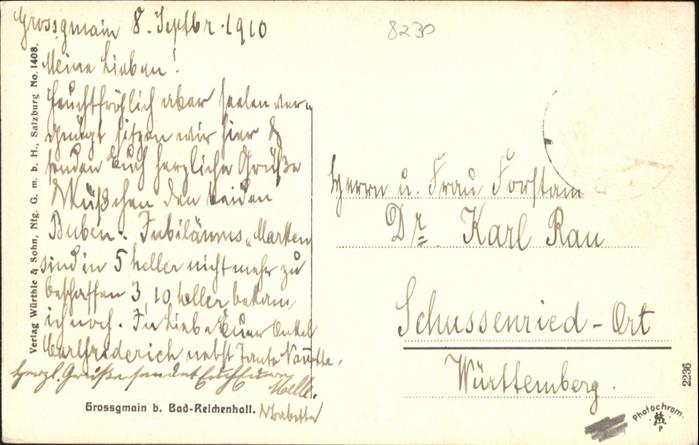 Grossgmain 8. Septbr. 1910
8230
Meine Lieben!
Feuchtfröhlich aber seelenver-
gnügt sitzen wir hier &
senden Euch herzliche Grüße
& Küßchen den beiden
Buben. Jubiläums-Marken
sind in 5 heller nicht mehr zu
beschaffen 3, 10 heller bekam
ich noch. In Liebe Euer Onkel
Carlfriderich nebst Tante
herzl. Grüße sendet Euch Euer
Grossgmain b. Bad-Reichenhall.
Verlag Würthle & Sohn, Nfg. G. m. b. H., Salzburg No. 1408.
Herrn u. Frau Forstam
Dr. Karl Rau
Schussenried-Ort
Württemberg.
2236
Photochrom.
P